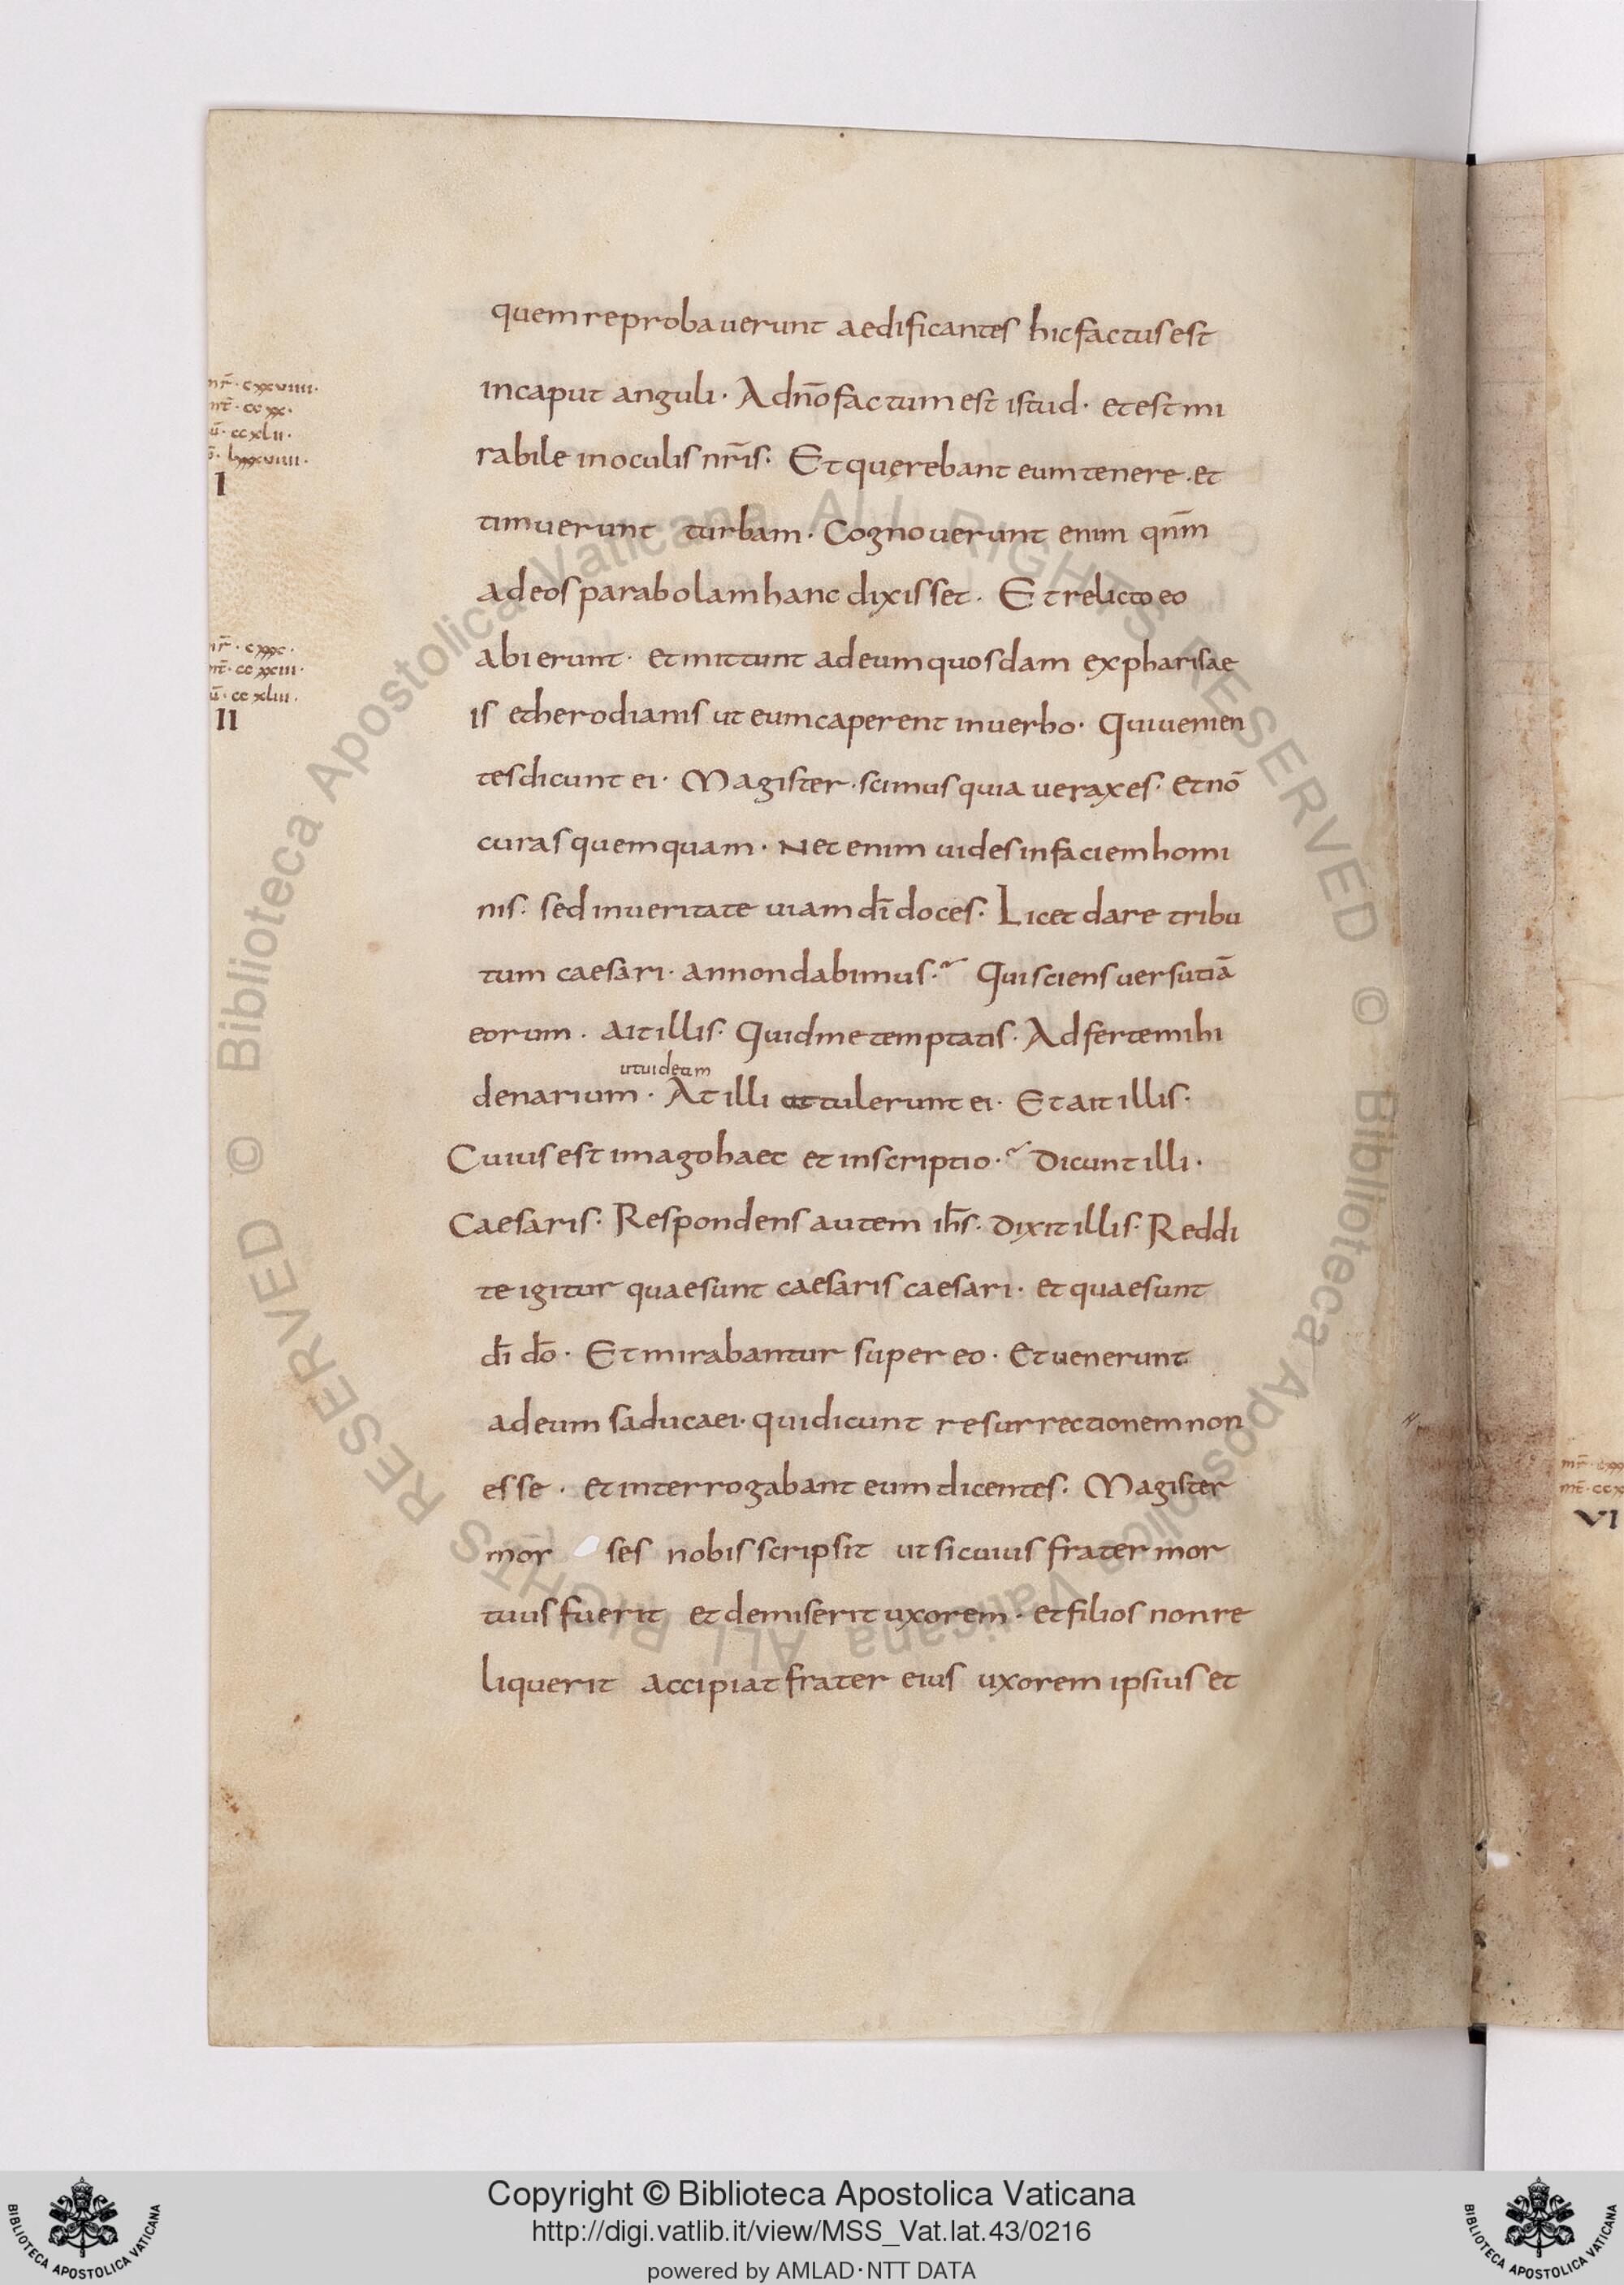 quem reprobauerunt aedificantes hic factus est
in caput anguli · A dn̄o factum est istud · et est mi
rabile in oculis nr̄is · Et querebant eum tenere · et
timuerunt turbam · Cognouerunt enim qnm̄
ad eos parabolam hanc dixisset · Et relicto eo
abierunt · et mittunt ad eum quosdam ex pharisae
is et herodianis ut eum caperent in uerbo · Qui uenien
tes dicunt ei · Magister · scimus quia uerax es · et nō
curas quemquam · Nec enim uides in faciem homi
nis · sed in ueritate uiam dī doces · Licet dare tribu
tum caesari · an non dabimus · Qui sciens uersutiā
eorum · ait illis · Quid me temptatis · Adferte mihi
ut uideam
denarium · At illi attulerunt ei · Et ait illis ·
Cuius est imago haec et inscriptio · Dicunt illi ·
Caesaris · Respondens autem ih̄s · Dixit illis · Reddi
te igitur quae sunt caesaris caesari · et quae sunt
dī dō · Et mirabantur super eo · Et uenerunt
ad eum saducaei · qui dicunt resurrectionem non
esse · et interrogabant eum dicentes · Magister
mor ses nobis scripsit ut si cuius frater mor
tuus fuerit et demiserit uxorem · et filios non re
liquerit accipiat frater eius uxorem ipsius et
mr̄ · cxxviiii ·
mt̄ · ccxx ·
ū · ccxlii ·
ō · lxxxviiii ·
I
mr̄ · cxxx ·
mt̄ · ccxxiii ·
ū · ccxliii ·
II
VI
© Biblioteca Apostolica Vaticana ALL RIGHTS RESERVED
© Biblioteca Apostolica Vaticana ALL RIGHTS RESERVED
Copyright © Biblioteca Apostolica Vaticana
http://digi.vatlib.it/view/MSS_Vat.lat.43/0216
powered by AMLAD·NTT DATA
BIBLIOTECA APOSTOLICA VATICANA
BIBLIOTECA APOSTOLICA VATICANA